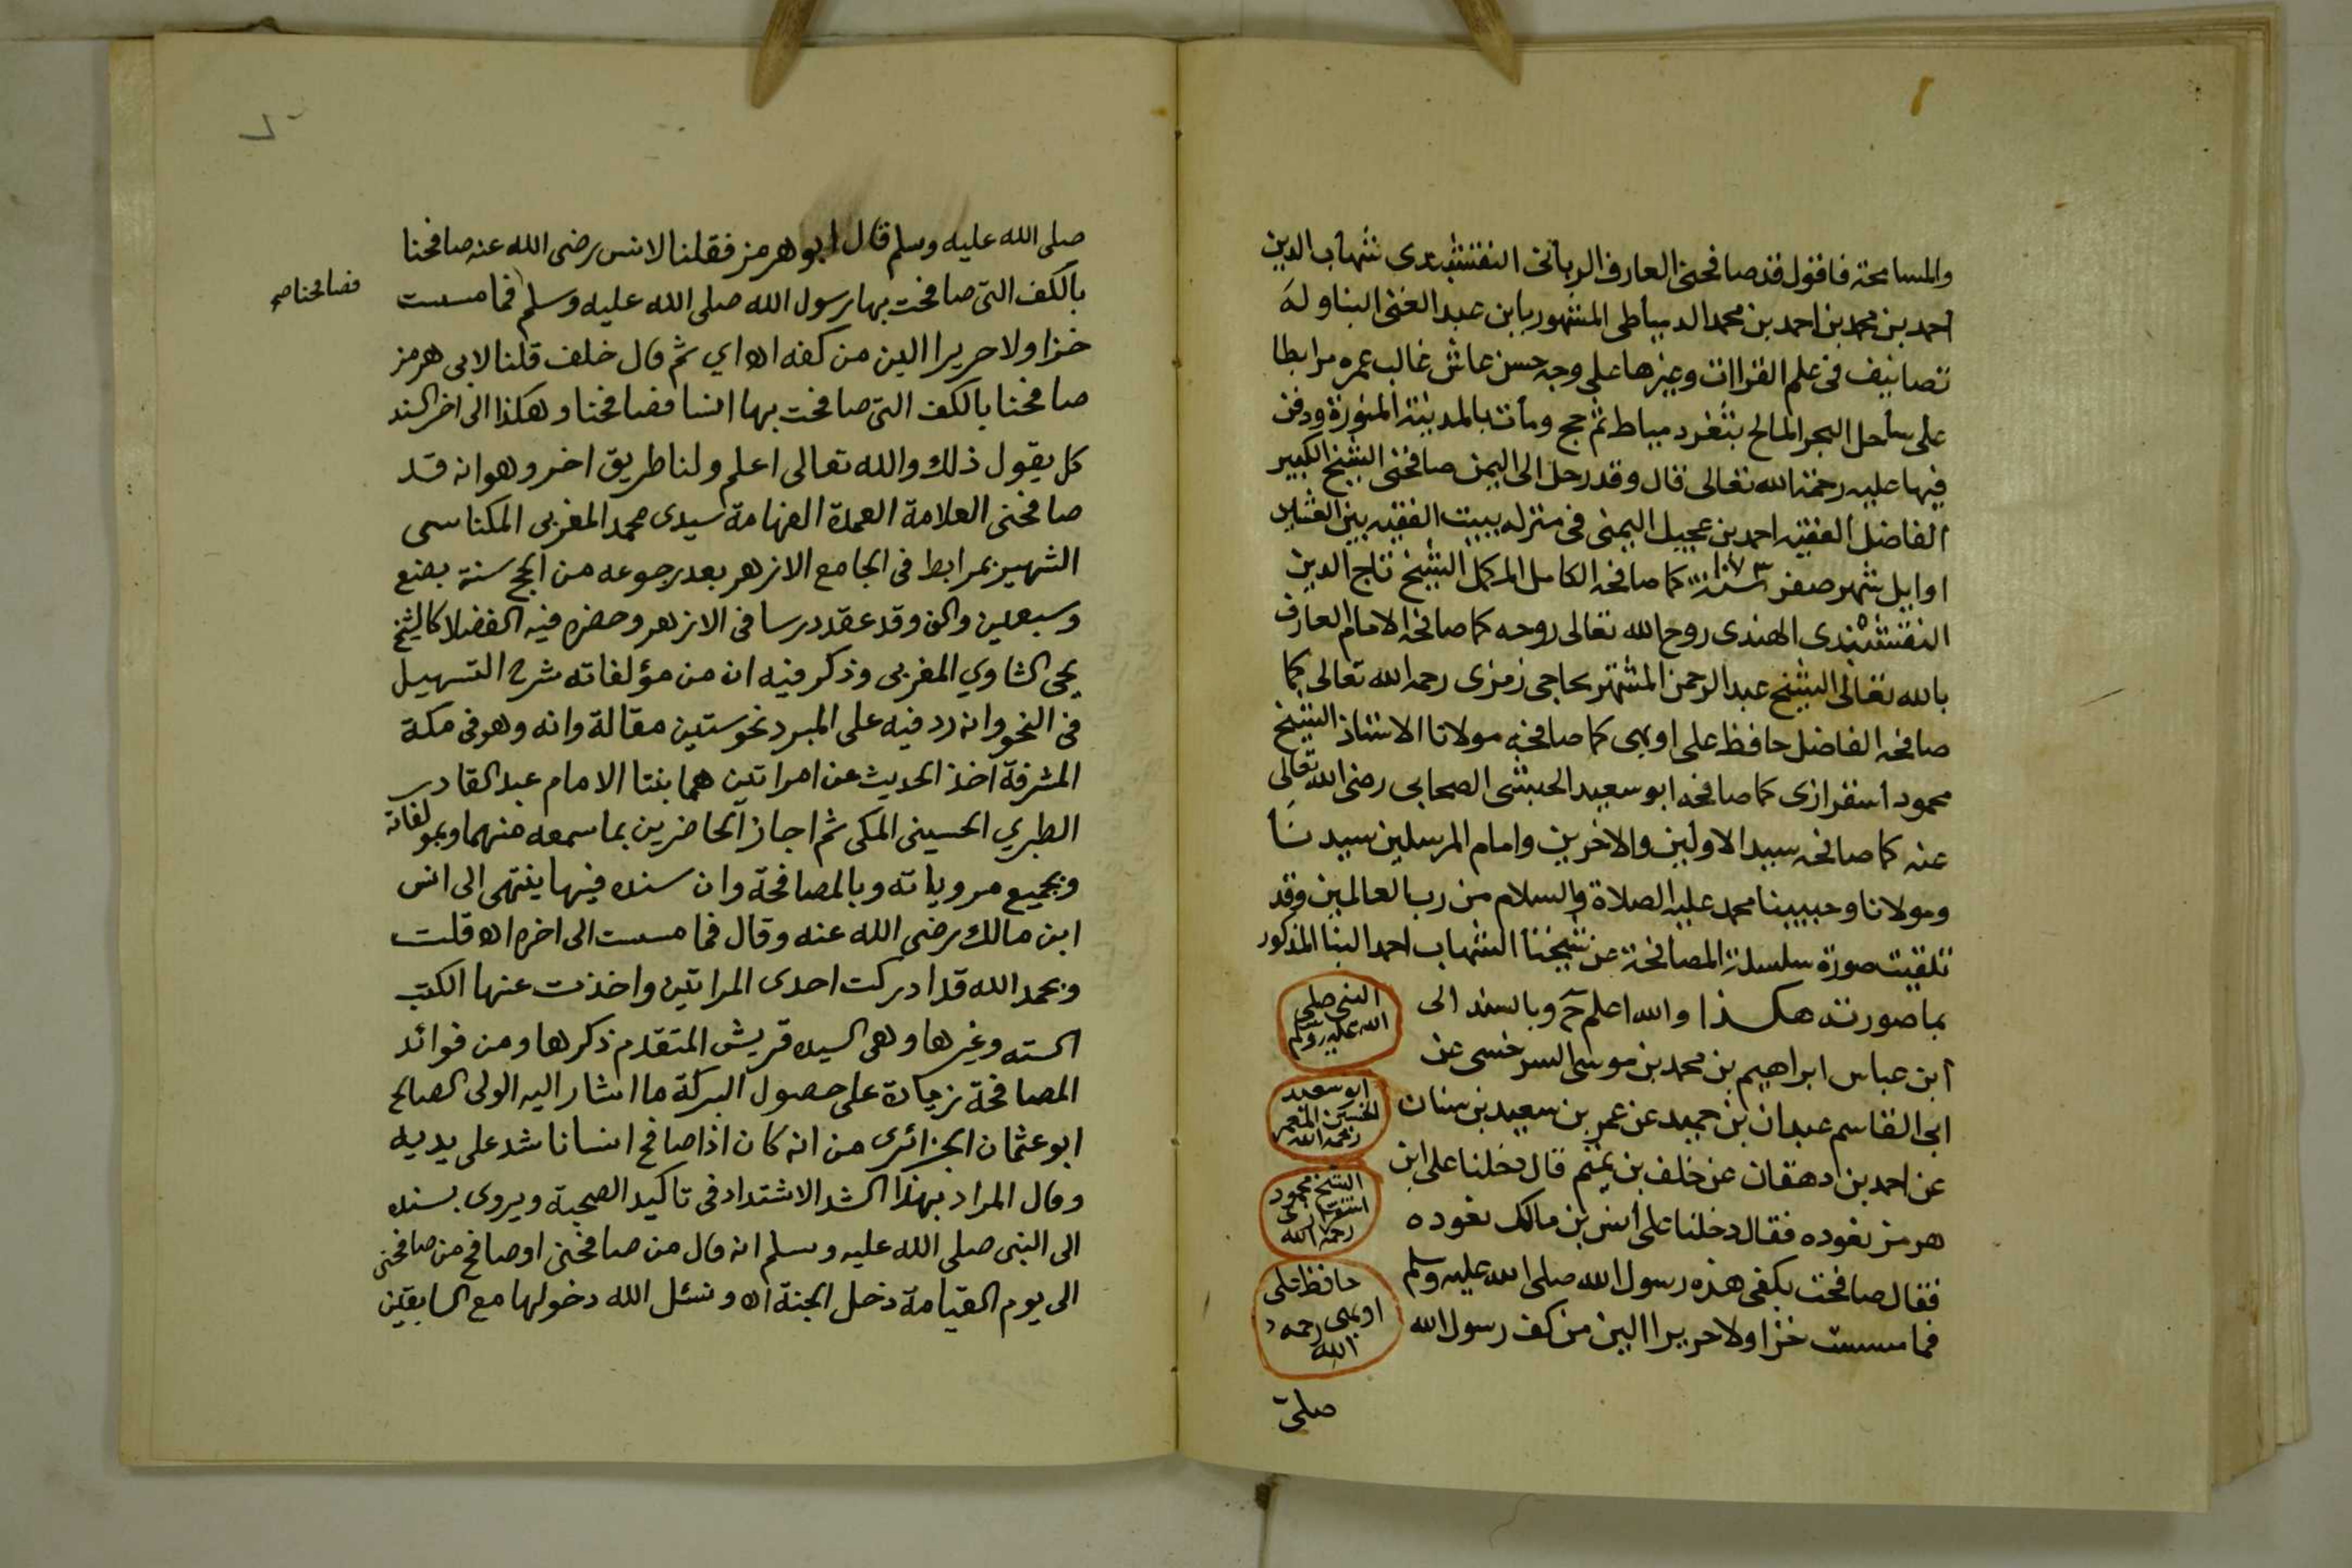 والمسامحة فاقول قد صافحنى العارف الربانى النقشبندى شهاب الدين
احمد بن محمد بن احمد بن محمد الدمياطى المشهور بابن عبد الغنى البنا وله
تصانيف فى علم القراات وغيرها على وجه حسن عاش غالب عمره مرابطا
على ساحل البحر المالح بثغر دمياط ثم حج ومات بالمدينة المنورة ودفن
فيها عليه رحمة الله تعالى قال وقد رحل الى اليمن صافحنى الشيخ الكبير
الفاضل الفقيه احمد بن عجيل اليمنى فى منزله ببيت الفقيه بين العشاين
اوايل شهر صفر سنة ١٠٧٣ كما صافحه الكامل المكمل الشيخ تاج الدين
النقشبندى الهندى روح الله تعالى روحه كما صافحه الامام العارف
بالله تعالى الشيخ عبد الرحمن المشتهر بحاجى زمزى رحمه الله تعالى كما
صافحه الفاضل حافظ على اوبهى كما صافحه مولانا الاستاذ الشيخ
محمود اسفرازى كما صافحه ابو سعيد الحبشى الصحابى رضى الله تعالى
عنه كما صافحه سيد الاولين والاخرين وامام المرسلين سيدنا
ومولانا وحبيبنا محمد عليه الصلاة والسلام من رب العالمين وقد
تلقيت صورة سلسلة المصافحة عن شيخنا الشهاب احمد البنا المذكور
بما صورته هكذا والله اعلم ح وبالسند الى
ابن عباس ابراهيم بن محمد بن موسى السرخسى عن
ابى القاسم عبدان بن حميد عن عمر بن سعيد بن سنان
عن احمد بن دهقان عن خلف بن تميم قال دخلنا على ابن
هرمز نعوده فقال دخلنا على انس بن مالك نعوده
فقال صافحت بكفى هذه رسول الله صلى الله عليه وسلم
فما مسست خزا ولا حريرا الين من كف رسول الله
النبى صلى
الله عليه وسلم
ابو سعيد
الحبشى المعمر
رحمه الله
الشيخ محمود
اسفرازى
رحمه الله
حافظ على
اوبهى رحمه
الله
صلى
صلى الله عليه وسلم قال ابو هرمز فقلنا لانس رضى الله عنه صافحنا
بالكف التى صافحت بها رسول الله صلى الله عليه وسلم فما مسست
فصافحنا صح
خزا ولا حريرا الين من كفه اه اي ثم قال خلف قلنا لابى هرمز
صافحنا بالكف التى صافحت بها انسا فصافحنا وهكذا الى اخر السند
كل يقول ذلك والله تعالى اعلم ولنا طريق اخر وهو انه قد
صافحنى العلامة العمدة الفهامة سيدى محمد المغربى المكناسى
الشهير بمرابط فى الجامع الازهر بعد رجوعه من الحج سنة بضع
وسبعين والف وقد عقد درسا فى الازهر وحضره فيه الفضلا كالشيخ
يحيى الشاوي المغربى وذكر فيه ان من مؤلفاته شرح التسهيل
فى النحو وانه رد فيه على المبرد نحو ستين مقالة وانه وهو فى مكة
المشرفة اخذ الحديث عن امراتين هما بنتا الامام عبد القادر
الطبري الحسينى المكى ثم اجاز الحاضرين بما سمعه منهما وبمولفاته
وبجميع مروياته وبالمصافحة وان سنده فيها ينتهى الى انس
ابن مالك رضى الله عنه وقال فما مسست الى اخره اه قلت
وبحمد الله قد ادركت احدى المراتين واخذت عنها الكتب
الستة وغيرها وهى السيده قريش المتقدم ذكرها ومن فوائد
المصافحة زيادة على حصول البركة ما اشار اليه الولى الصالح
ابو عثمان الجزائرى من انه كان اذا صافح انسانا شد على يديه
وقال المراد بهذا الشد الاشتداد فى تاكيد الصحبة ويروى بسنده
الى النبى صلى الله عليه وسلم انه قال من صافحنى او صافح من صافحنى
الى يوم القيامة دخل الجنة اه ونسئل الله دخولها مع السابقين